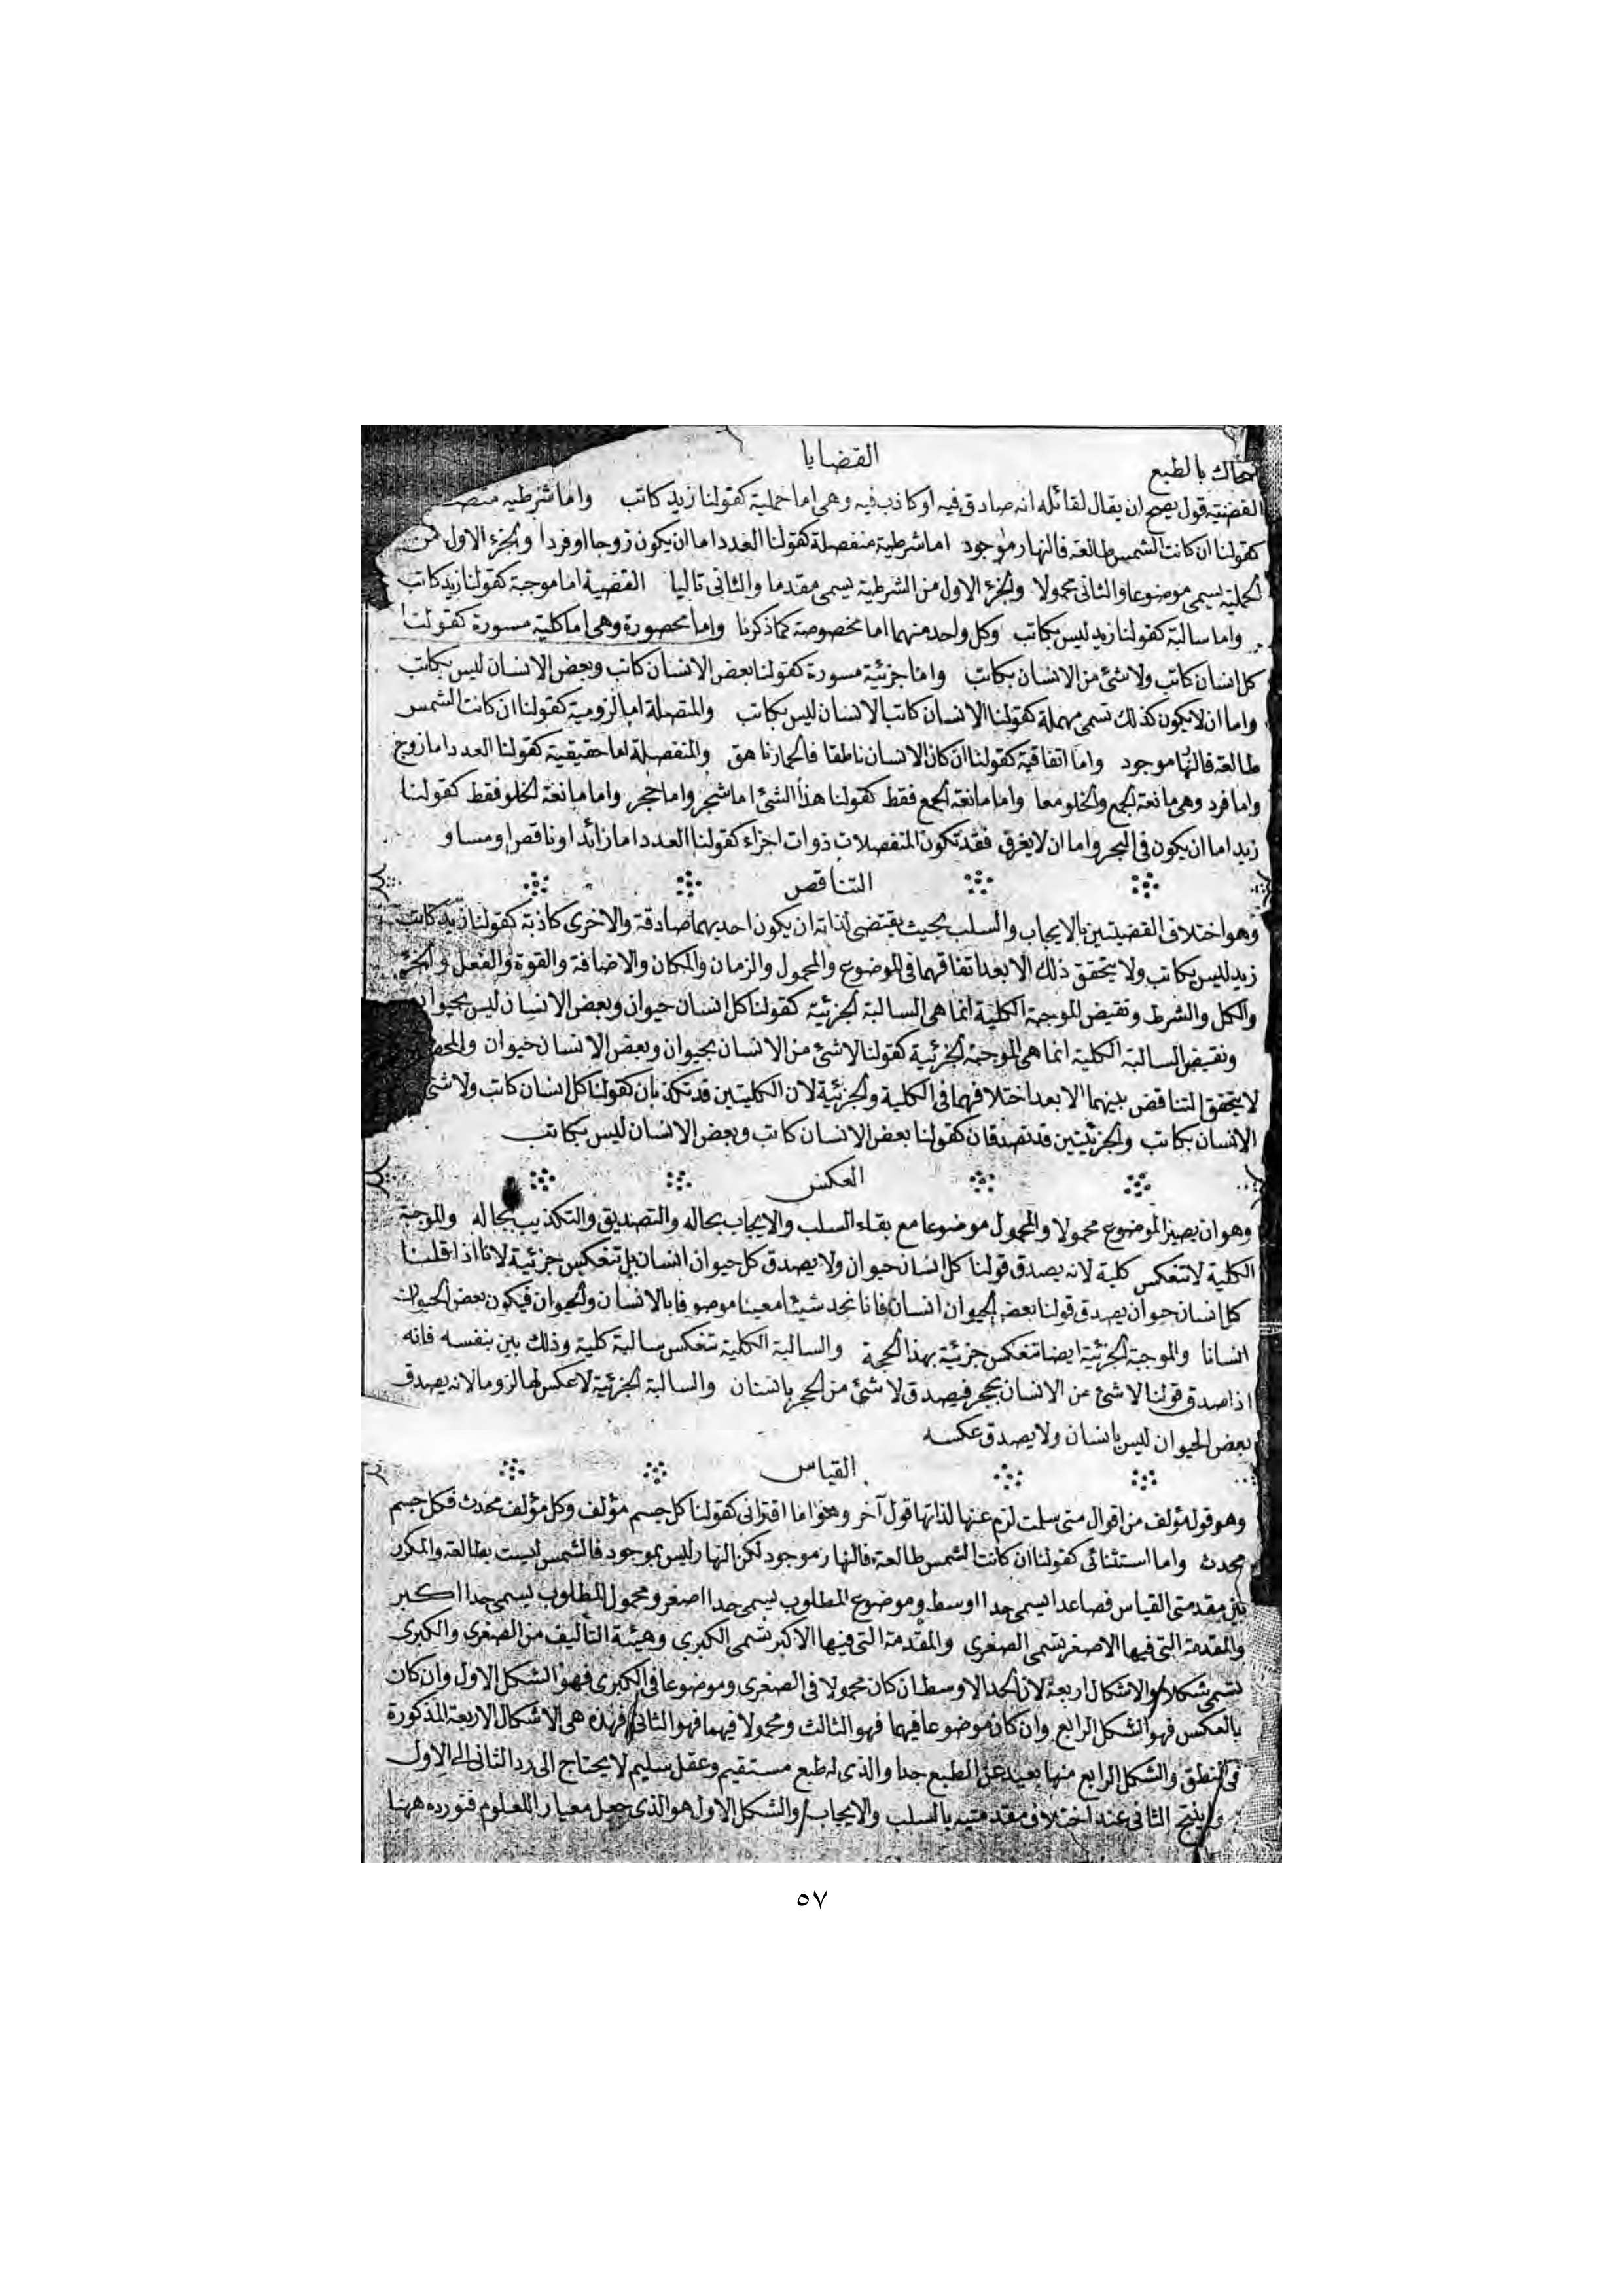 القضايا
ضحاك بالطبع
القضية قول يصح ان يقال لقائله انه صادق فيه او كاذب فيه وهى اما حملية كقولنا زيد كاتب واما شرطية متصـ
كقولنا ان كانت الشمس طالعة فالنهار موجود اما شرطية منفصلة كقولنا العدد اما ان يكون زوجا او فردا والجزء الاول من
الحملية يسمى موضوعا والثانى محمولا والجزء الاول من الشرطية يسمى مقدما والثانى تاليا القضية اما موجبة كقولنا زيد كاتب
واما سالبة كقولنا زيد ليس بكاتب وكل واحد منهما اما مخصوصة كما ذكرنا واما محصورة وهى اما كلية مسورة كقولنا
كل انسان كاتب ولا شئ من الانسان بكاتب واما جزئية مسورة كقولنا بعض الانسان كاتب وبعض الانسان ليس بكاتب
واما ان لا يكون كذلك تسمى مهملة كقولنا الانسان كاتب الانسان ليس بكاتب والمتصلة اما لزومية كقولنا ان كانت الشمس
طالعة فالنهار موجود واما اتفاقية كقولنا ان كان الانسان ناطقا فالحمار ناهق والمنفصلة اما حقيقية كقولنا العدد اما زوج
واما فرد وهى مانعة الجمع والخلو معا واما مانعة الجمع فقط كقولنا هذا الشئ اما شجر واما حجر واما مانعة الخلو فقط كقولنا
زيد اما ان يكون فى البحر واما ان لا يغرق فقد تكون المنفصلات ذوات اجزاء كقولنا العدد اما زائد او ناقص او مساو
التناقض
وهو اختلاف القضيتين بالايجاب والسلب بحيث يقتضى لذاته ان يكون احديهما صادقة والاخرى كاذبة كقولنا زيد كاتب
زيد ليس بكاتب ولا يتحقق ذلك الا بعد اتفاقهما فى الموضوع والمحمول والزمان والمكان والاضافة والقوة والفعل والجزء
والكل والشرط ونقيض الموجبة الكلية انما هى السالبة الجزئية كقولنا كل انسان حيوان وبعض الانسان ليس بحيوان
ونقيض السالبة الكلية انما هى الموجبة الجزئية كقولنا لا شئ من الانسان بحيوان وبعض الانسان حيوان
لا يتحقق التناقض بينهما الا بعد اختلافهما فى الكلية والجزئية لان الكليتين قد تكذبان كقولنا كل انسان كاتب ولا شئ
الانسان بكاتب والجزئيتين قد تصدقان كقولنا بعض الانسان كاتب وبعض الانسان ليس بكاتب
العكس
وهو ان يصير الموضوع محمولا والمحمول موضوعا مع بقاء السلب والايجاب بحاله والتصديق والتكذيب بحاله والموجبة
الكلية لا تنعكس كلية لانه يصدق قولنا كل انسان حيوان ولا يصدق كل حيوان انسان بل تنعكس جزئية لانا اذا قلنا
كل انسان حيوان يصدق قولنا بعض الحيوان انسان فانا نجد شيئا معينا موصوفا بالانسان والحيوان فيكون بعض الحيوان
انسانا والموجبة الجزئية ايضا تنعكس جزئية بهذا الحجة والسالبة الكلية تنعكس سالبة كلية وذلك بين بنفسه فانه
اذا صدق قولنا لا شئ من الانسان بحجر فيصدق لا شئ من الحجر بانسان والسالبة الجزئية لا عكس لها لزوما لانه يصدق
بعض الحيوان ليس بانسان ولا يصدق عكسه
القياس
وهو قول مؤلف من اقوال متى سلمت لزم عنها لذاتها قول آخر وهو اما اقترانى كقولنا كل جسم مؤلف وكل مؤلف محدث فكل جسم
محدث واما استثنائى كقولنا ان كانت الشمس طالعة فالنهار موجود لكن النهار ليس بموجود فالشمس ليست بطالعة والمكرر
بين مقدمتى القياس فصاعدا يسمى حدا اوسط وموضوع المطلوب يسمى حدا اصغر ومحمول المطلوب يسمى حدا اكبر
والمقدمة التى فيها الاصغر تسمى الصغرى والمقدمة التى فيها الاكبر تسمى الكبرى وهيئة التأليف من الصغرى والكبرى
تسمى شكلا والاشكال اربعة لان الحد الاوسط ان كان محمولا فى الصغرى وموضوعا فى الكبرى فهو الشكل الاول وان كان
بالعكس فهو الشكل الرابع وان كان موضوعا فيهما فهو الثالث ومحمولا فيهما فهو الثانى فهذه هى الاشكال الاربعة المذكورة
فى المنطق والشكل الرابع منها بعيد عن الطبع جدا والذى له طبع مستقيم وعقل سليم لا يحتاج الى رد الثانى الى الاول
وينتج الثانى عند اختلاف مقدمتيه بالسلب والايجاب والشكل الاول هو الذى جعل معيار اللعلوم فنورده ههنا
٥٧